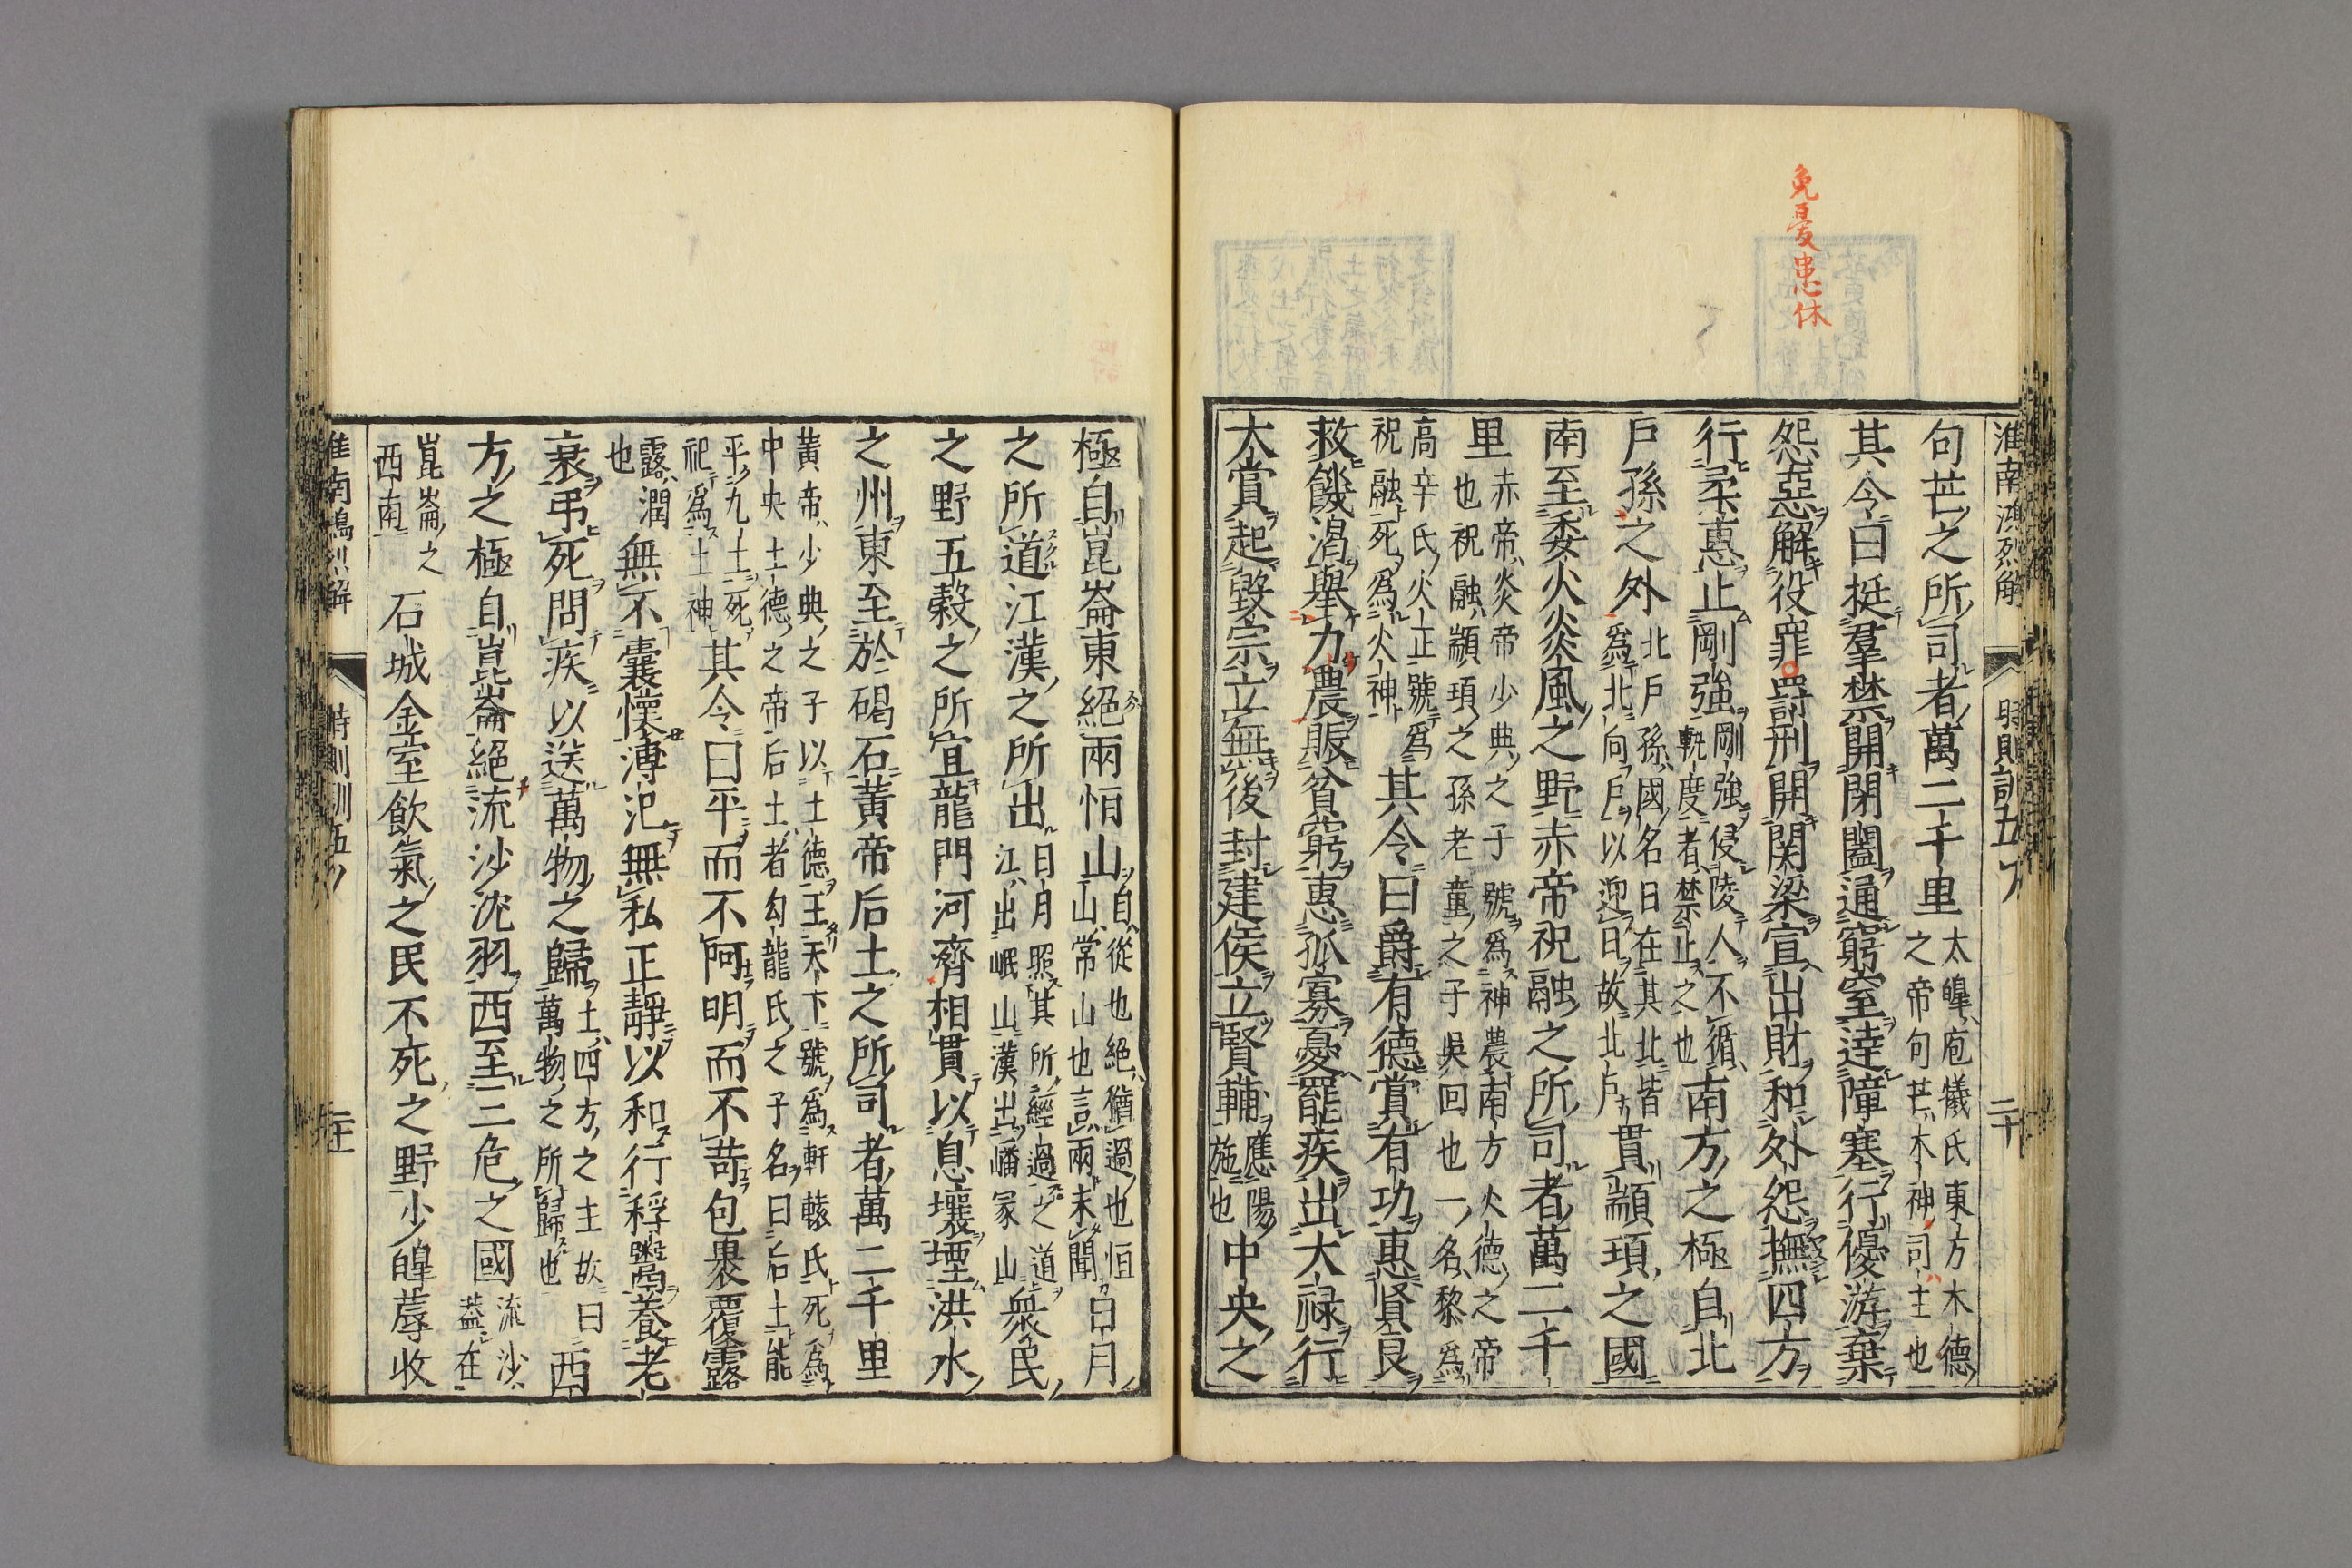 免憂串忠休
淮南鴻烈解 時則訓五 二十
句芒之所司者萬二千里太皥庖犧氏東方木德之帝句芒木神司主也
其令曰挺羣禁開閉闔通窮窒達障塞行優游棄
怨惡解役罪○罰刑開關梁宣出財和外怨撫四方
行柔惠止剛強剛強侵陵人不循軌度者禁止之也南方之極自北
戶孫之外北戶孫國名日在其北皆爲北向戶以迎日故北戶貫顓頊之國
南至委火炎風之野赤帝祝融之所司者萬二千
里赤帝炎帝少典之子號爲神農南方火德之帝也祝融顓頊之孫老童之子吳回也一名黎爲
高辛氏火正號爲祝融死爲火神其令曰爵有德賞有功惠賢良
救饑渴舉力農賑貧窮惠孤寡憂罷疾出大祿行
大賞起毀宗立無後封建侯立賢輔應陽施也中央之
極自崑崙東絕兩恒山自從也絕猶過也恒山常山也言兩未聞日月
之所道江漢之所出日月照其所經過之道江出岷山漢出嶓冢山衆民
之野五穀之所宜龍門河濟相貫以息壤堙洪水
之州東至於碣石黃帝后土之所司者萬二千里
黃帝少典之子以土德王天下號爲軒轅氏死爲中央土德之帝后土者勾龍氏之子名曰后土能
平九土死祀爲土神其令曰平而不阿明而不苛包裹覆露
露潤也無不囊懷溥氾無私正靜以和行稃鬻養老
衰弔死問疾以送萬物之歸土四方之主故曰萬物之所歸也西
方之極自崑崙絕流沙沈羽西至三危之國流沙蓋在
崑崙之西南石城金室飲氣之民不死之野少皥蓐收
淮南鴻烈解 時則訓五